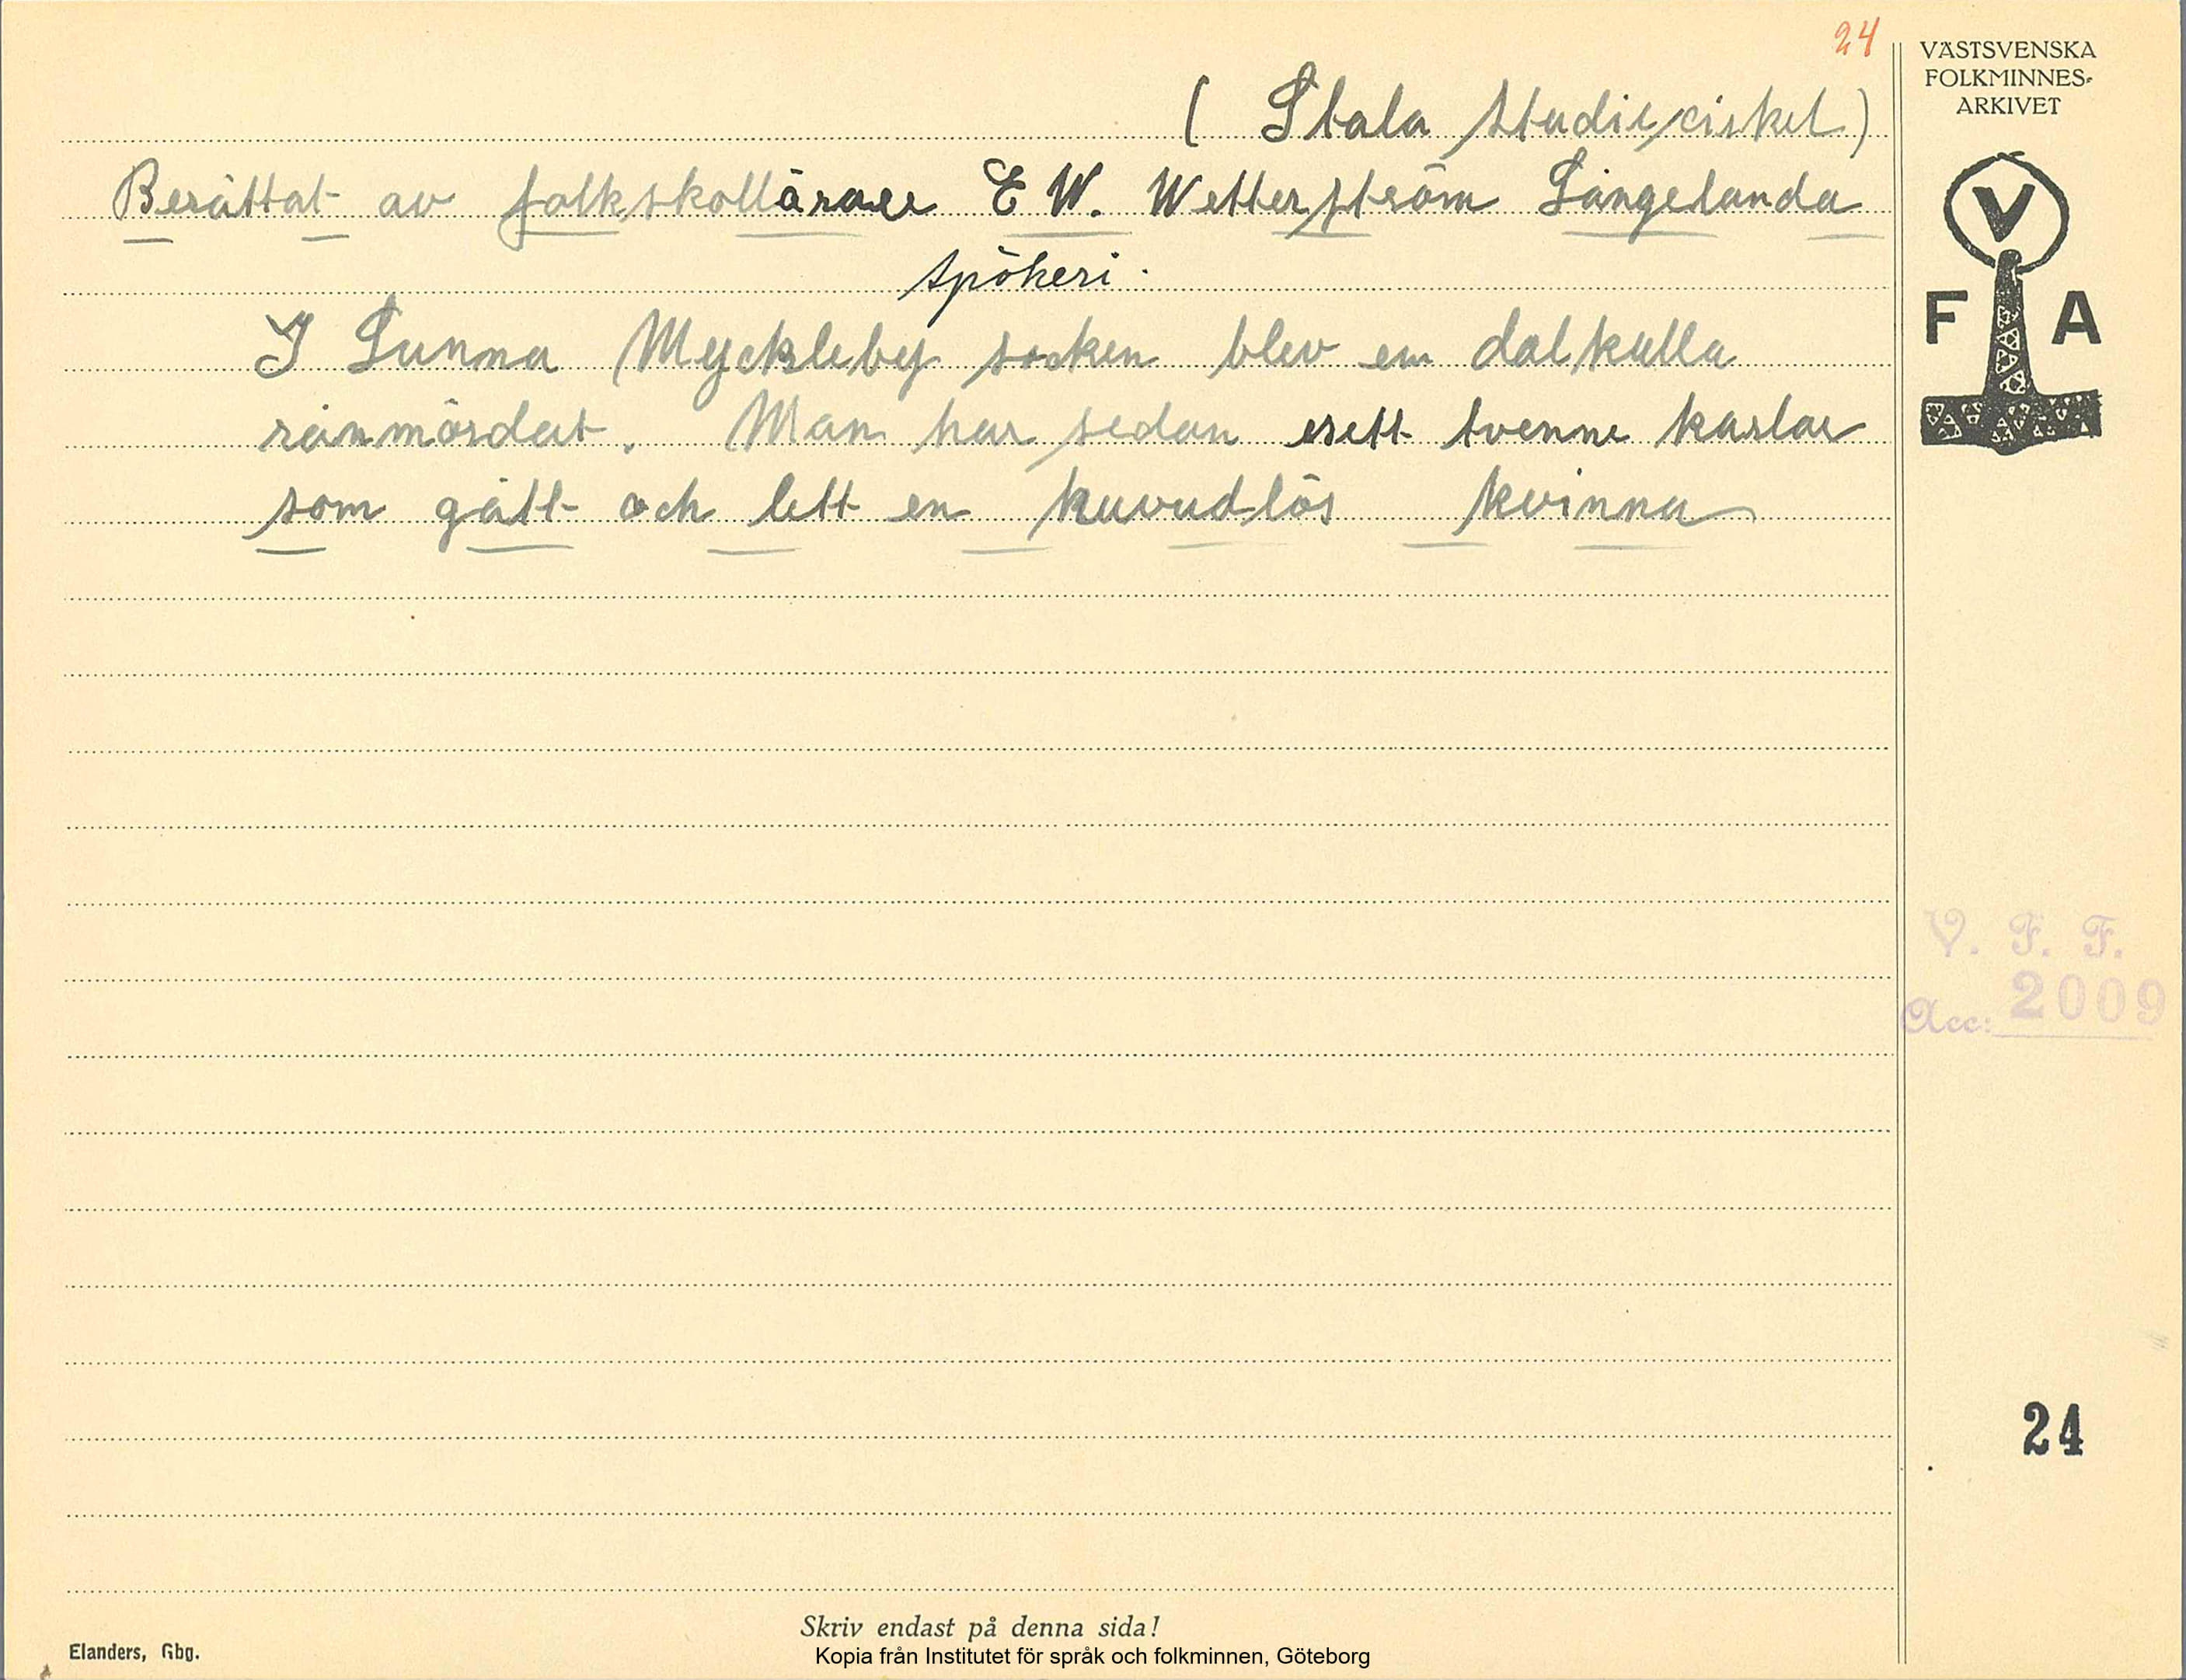 24
( Stala studie cirkel )
Berättat av folkskollärare E W. Wetterström Långelanda
spökeri.
I Sunna Myckleby socken blev en dalkulla
rånmördat. Man har sedan esett tvenne karlar
som gått och lett en huvudlös kvinna
VÄSTSVENSKA
FOLKMINNES-
ARKIVET
V
F A
V. F. F.
Acc: 2009
24
Skriv endast på denna sida!
Elanders, Gbg.
Kopia från Institutet för språk och folkminnen, Göteborg